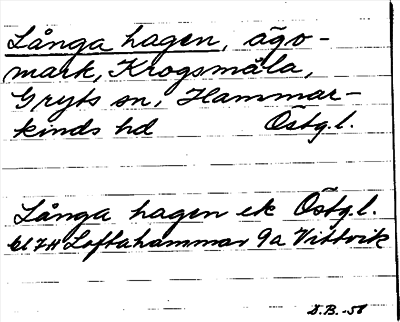 Långa hagen, ägo-
mark, Krogsmåla,
Gryts sn, Hammar-
kinds hd Östg.l.
Långa hagen ek Östg.l.
bl 7H Loftahammar 9a Vittvik
D.B.-58